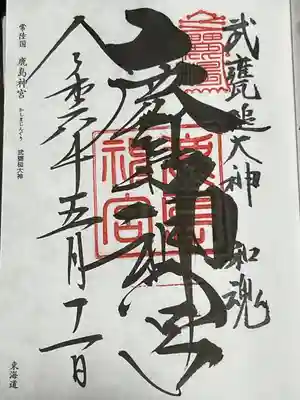 武甕追大神 和魂
鹿島神宮
鹿島神宮
令和六年五月十一日
常陸国 鹿島神宮 かしまじんぐう 武甕槌大神
東海道